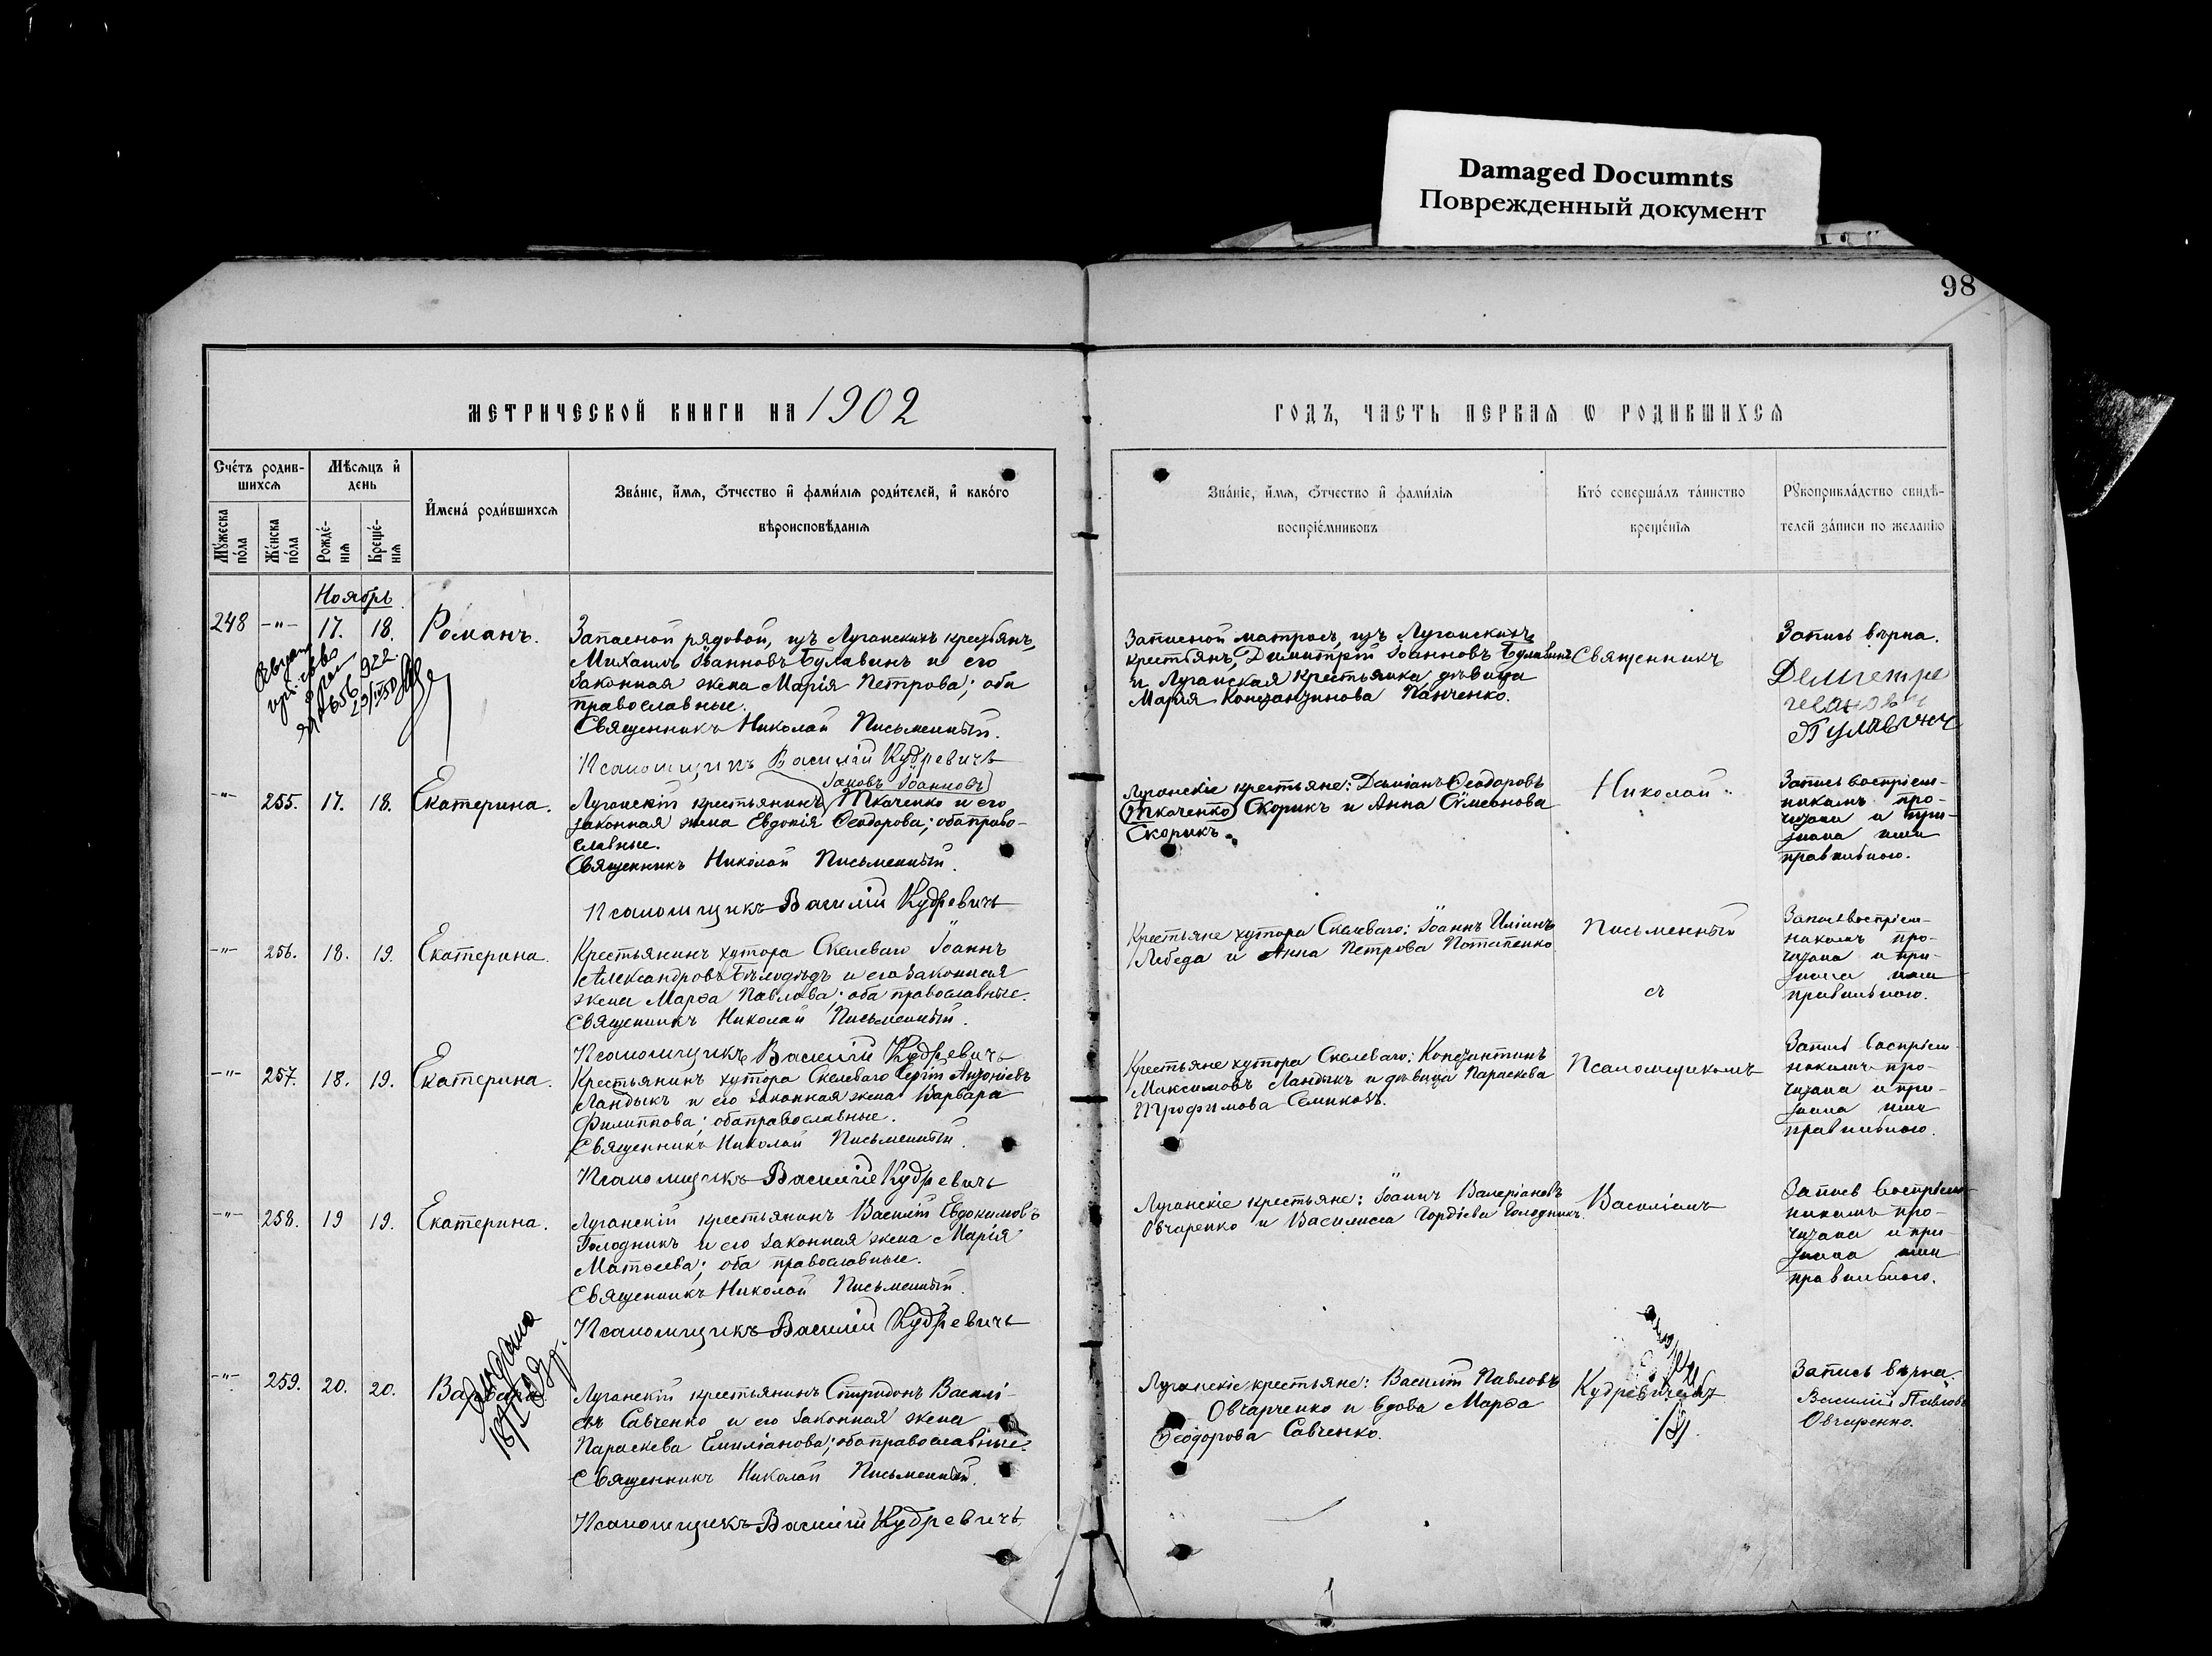 Damaged Documnts
Поврежденный документ
98
МЕТРИЧЕСКОЙ КНИГИ НА 1902
ГОДЪ, ЧАСТЬ ПЕРВАЯ Ѡ РОДИВШИХСЯ
Счетъ родив-
шихся
Мѣсяцъ и
день
Мужеска
пола
Женска
пола
Рожде-
нія
Креще-
нія
Имена родившихся
Званіе, имя, отчество и фамилія родителей, и какого
вѣроисповѣданія
Званіе, имя, отчество и фамилія
воспріемниковъ
Кто совершалъ таинство
крещенія
Рукоприкладство свидѣ-
телей записи по желанію
Ноябрь
248 -"- 17. 18. Романъ.
Запасной рядовой, изъ Луганскихъ крестьянъ,
Михаилъ Іоанновъ Булавинъ и его
законная жена Марія Петрова; оба
православные.
Священникъ Николай Письменный.
Псаломщикъ Василій Кудревичъ
Запасной матросъ, изъ Луганскихъ
крестьянъ, Димитрій Іоанновъ Булавинъ
и Луганская крестьянка дѣвица
Марія Константинова Панченко.
Священникъ
Запись вѣрна.
-"- 255. 17. 18. Екатерина.
Іаковъ Іоанновъ
Луганскій крестьянинъ Ткаченко и его
законная жена Евдокія Ѳеодорова; оба право-
славные.
Священникъ Николай Письменный.
Псаломщикъ Василій Кудревичъ
Луганскіе крестьяне: Даміанъ Ѳеодоровъ
(Ткаченко) Скорикъ и Анна Сѵмеонова
Скорикъ.
Николай
Запись воспріем-
никамъ про-
читана и при-
знана ими
правильною.
-"- 256. 18. 19. Екатерина.
Крестьянинъ хутора Скелеваго Іоаннъ
Александровъ Бѣлодѣдъ и его законная
жена Марѳа Павлова; оба православные.
Священникъ Николай Письменный.
Псаломщикъ Василій Кудревичъ
Крестьяне хутора Скелеваго: Іоаннъ Иліинъ
Лебеда и Анна Петрова Потапенко
Письменный
съ
Запись воспріем-
никамъ про-
читана и при-
знана ими
правильною.
-"- 257. 18. 19. Екатерина.
Крестьянинъ хутора Скелеваго Сергій Антоніевъ
Ландыкъ и его законная жена Варвара
Филиппова; оба православные.
Священникъ Николай Письменный.
Псаломщикъ Василій Кудревичъ
Крестьяне хутора Скелеваго: Константинъ
Максимовъ Ландыкъ и дѣвица Параскева
Трофимова Семикозъ.
Псаломщикомъ
Запись воспріем-
никамъ про-
читана и при-
знана ими
правильною.
-"- 258. 19 19. Екатерина.
Луганскій крестьянинъ Василій Евдокимовъ
Голодникъ и его законная жена Марія
Матѳеева; оба православные.
Священникъ Николай Письменный.
Псаломщикъ Василій Кудревичъ
Луганскіе крестьяне: Іоаннъ Валеріановъ
Овчаренко и Василисса Гордіева Голодникъ.
Василіемъ
Запись воспріем-
никамъ про-
читана и при-
знана ими
правильною.
-"- 259. 20. 20. Варвара.
Луганскій крестьянинъ Спиридонъ Василі-
евъ Савченко и его законная жена
Параскева Емиліанова; оба православные.
Священникъ Николай Письменный.
Псаломщикъ Василій Кудревичъ
Луганскіе крестьяне: Василій Павловъ
Овчарченко и вдова Марѳа
Ѳеодорова Савченко.
Кудревичемъ
Запись вѣрна.
Василий Павловъ
Овчаренко.